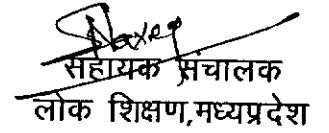 सहायक संचालक
लोक शिक्षण,मध्यप्रदेश